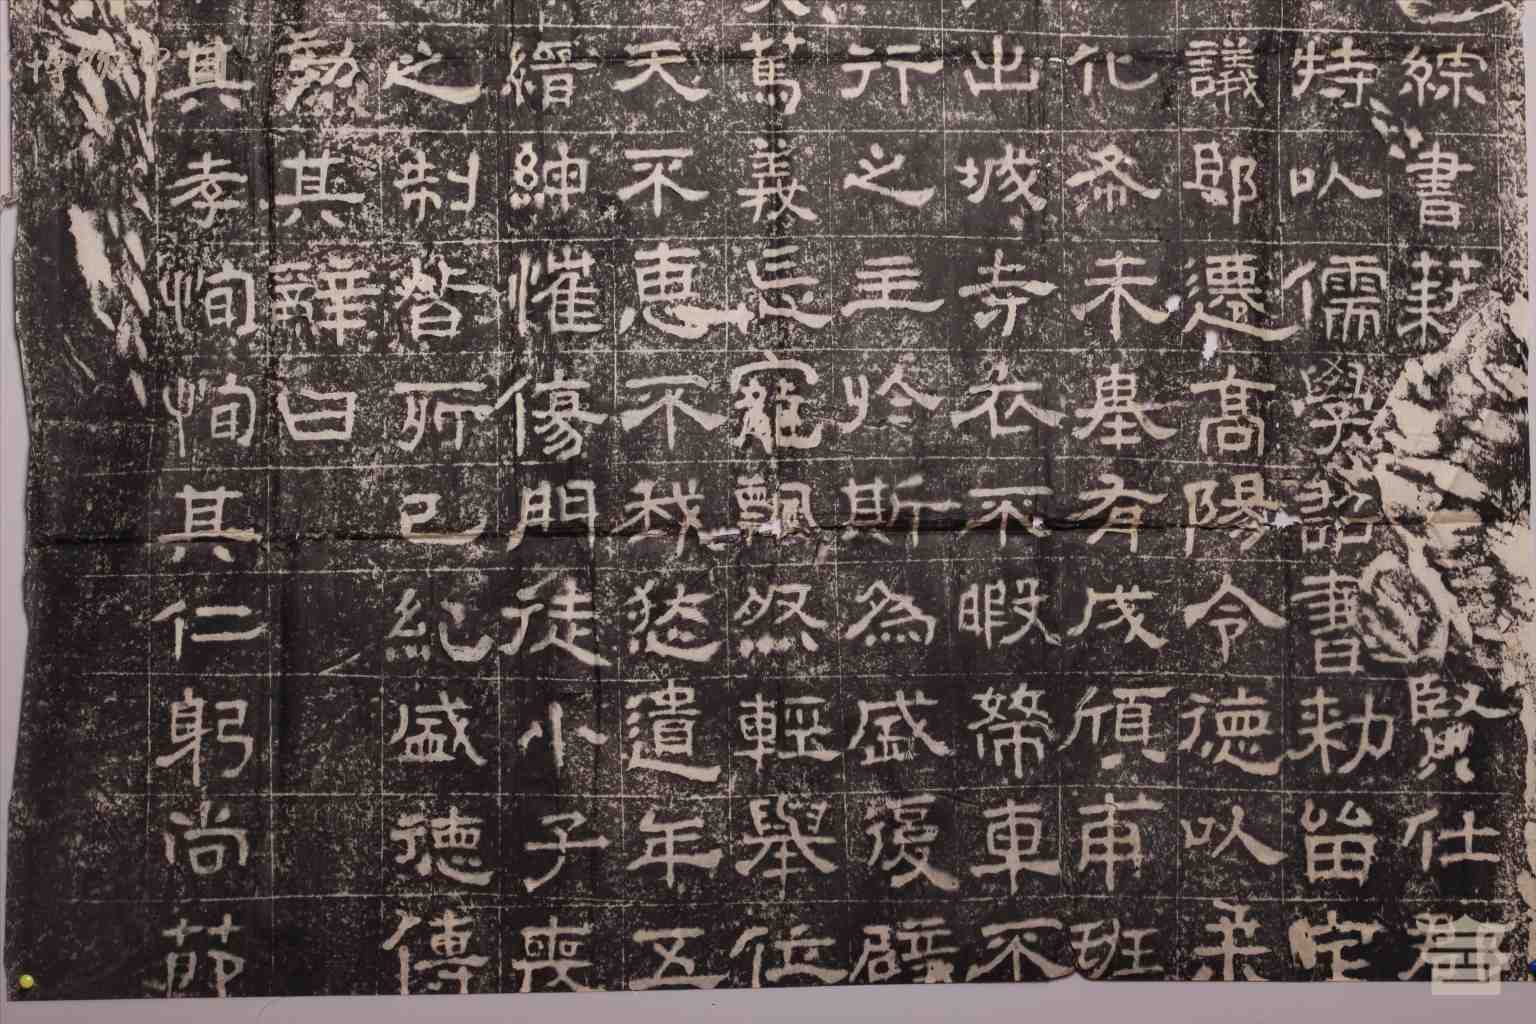 綜書藝賢仕
特以儒學詔書敕留定
議郎遷高陽令德以柔
化希未基有成甫班
出城寺衣不暇帶車不
行之主於斯為盛復辟
義忘寵飄然輕舉位
天不惠不我慭遺年五
縉紳慛傷門徒小子喪
之制皆所已紀盛德傳
勲其辭曰
其孝恂恂其仁躬尚節